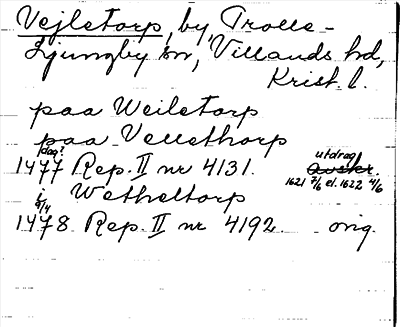 Vejletorp, by, Trolle-
Ljungby sn, Villands hd,
Krist. l.
paa Weiletorp
paa Vellethorp
dag?
1477 Rep. II nr 4131. utdrag
1621 7/6 el. 1622 4/6
i Wetheltorp
8/4
1478 Rep. II nr 4192. orig.